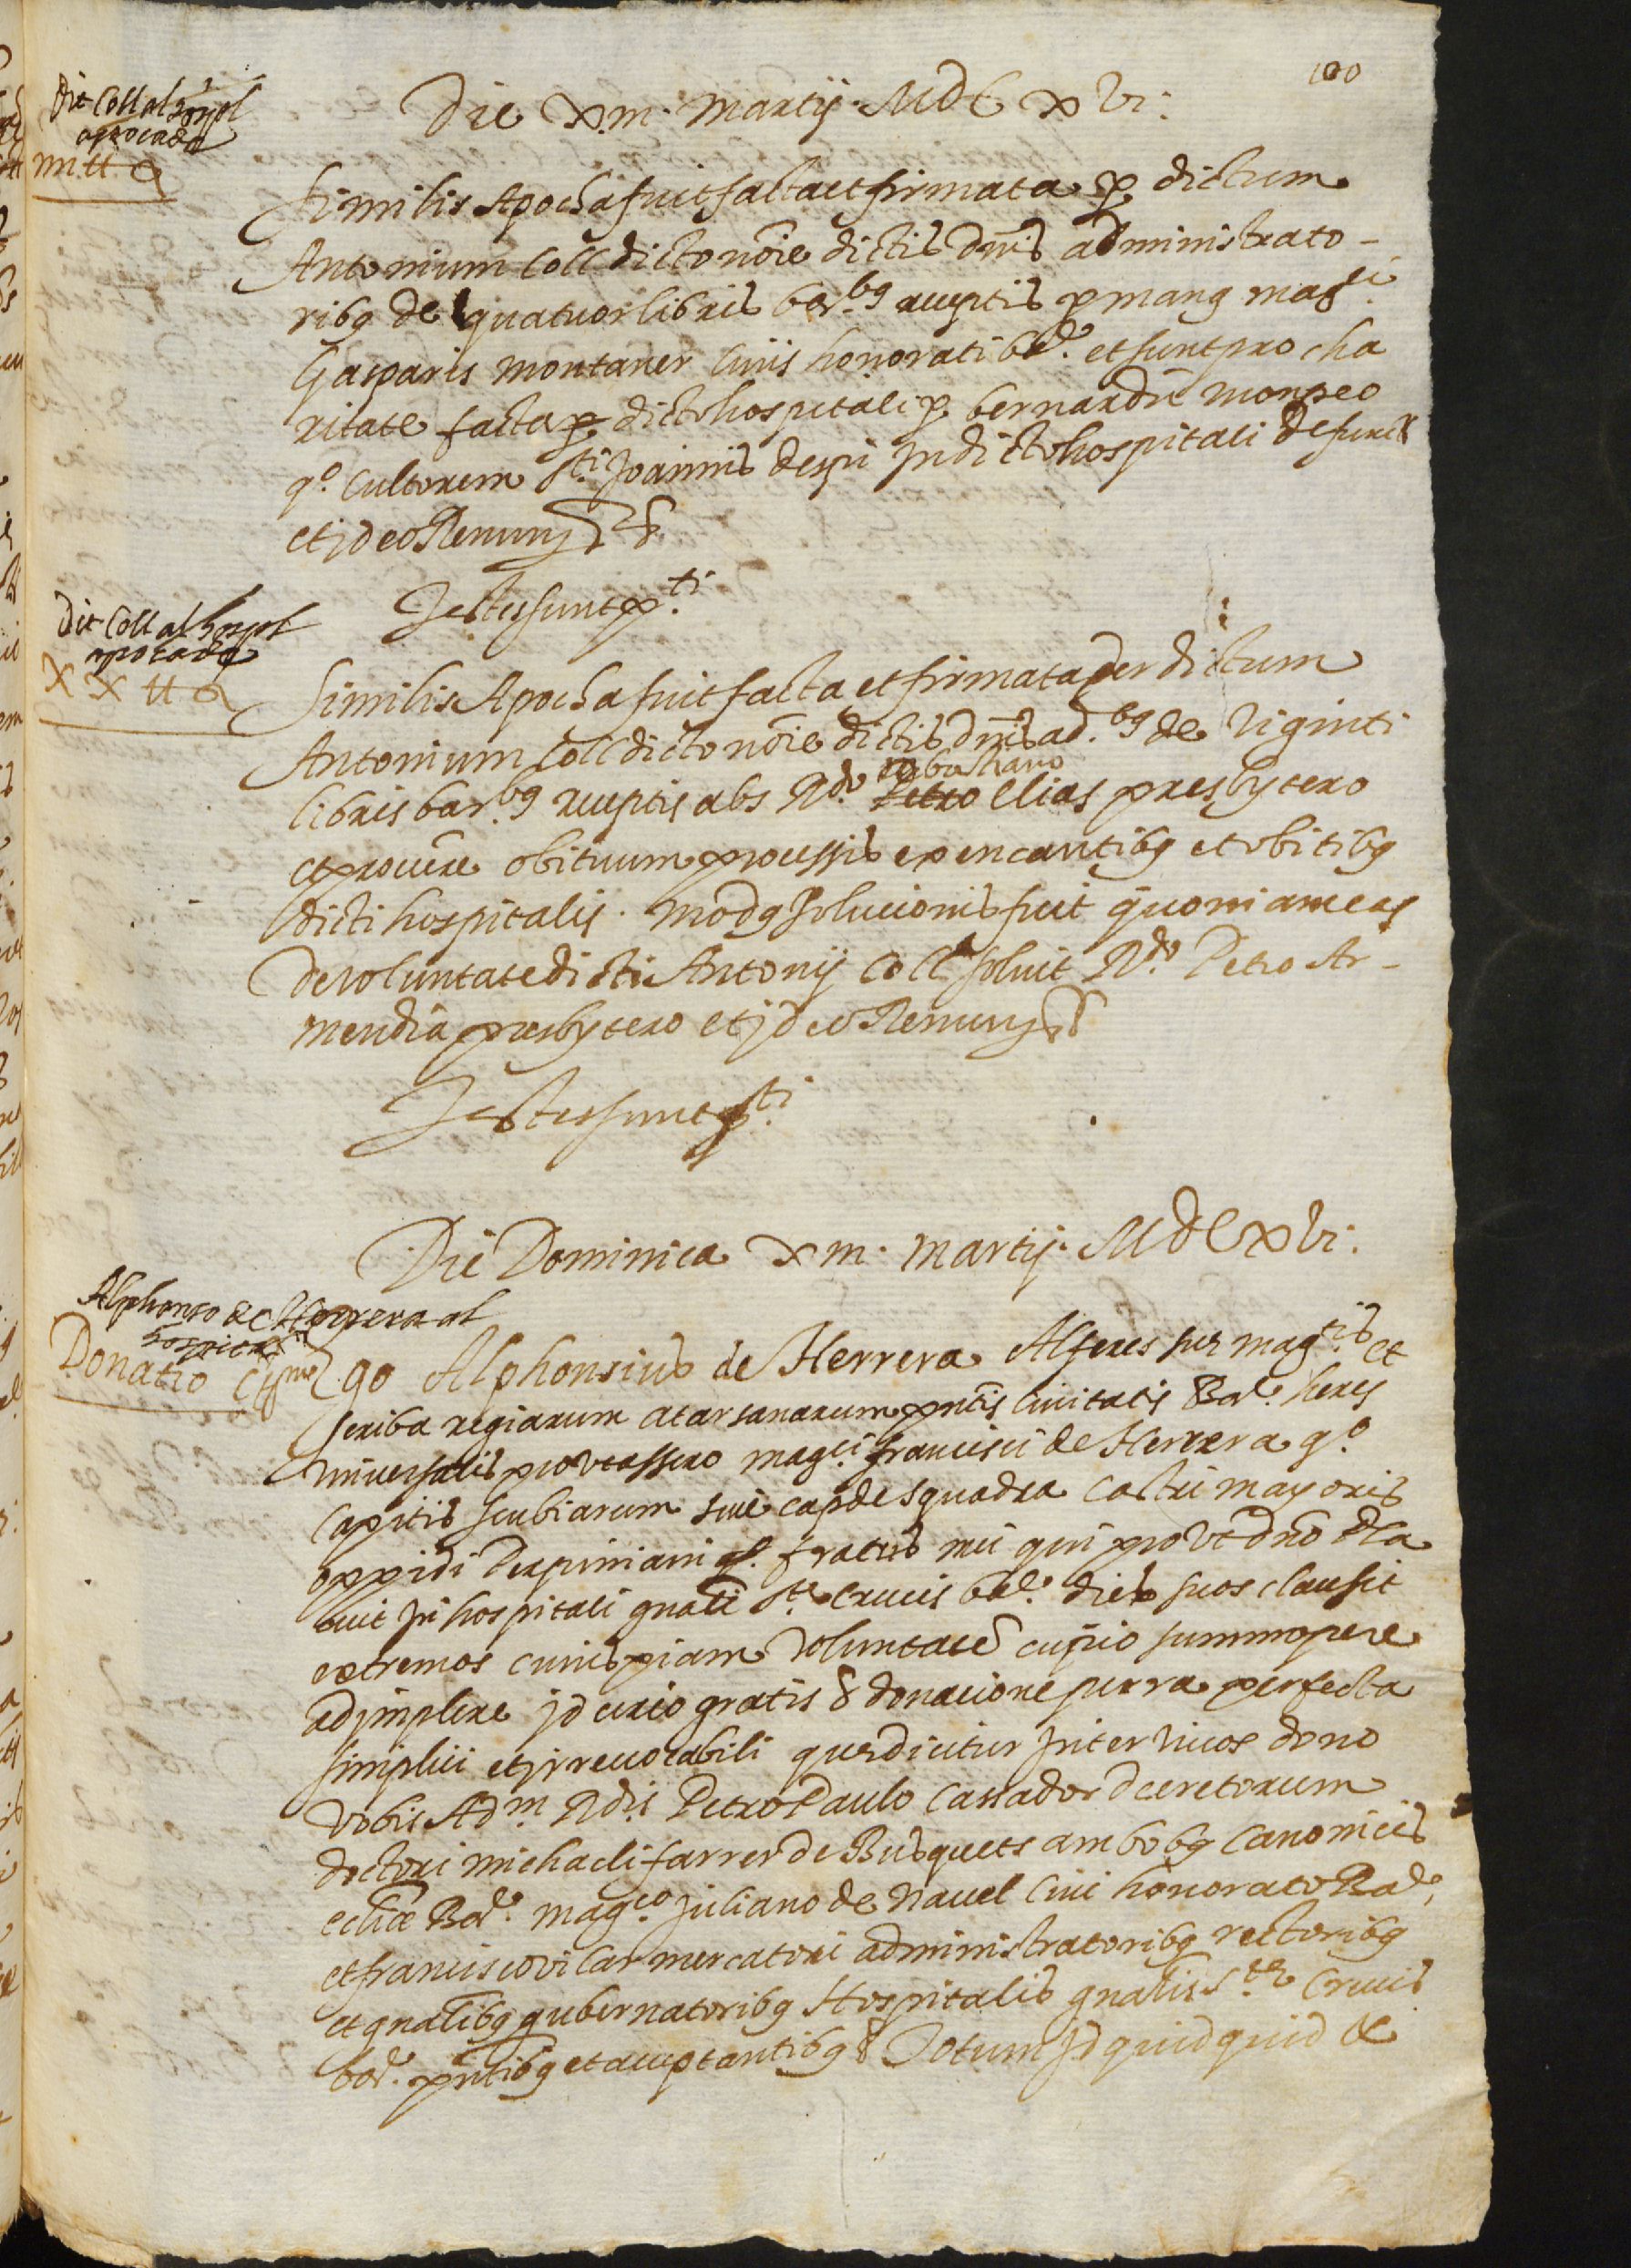 100
Die xiii. Martij. MdCxvi.
Dit Coll al hospl
apocada
iiii ℔ a
Similis Apocha fuit facta et firmata p dictum
Antonium Coll dicto noīe dictis dnīs administrato-
ribg de quatuor libris bar.bg receptis p mang magci.
Gasparis montaner Civis honorati bar. et sunt pro cha
ritate facta p dicto hospitali p bernardū monseo
q.º cultorem Sti Joannis despi in dicto hospitali defunct
et ideo Renunȝ &
Testes sunt p.ti
Dit Coll al hospl
apocada
xx ℔ a
Similis Apocha fuit facta et firmata per dictum
Antonium Coll dicto noīe dictis dnīs ad.bg de viginti
libris bar.bg receptis abs Rdo. Petro sebastiano Elias presbytero
et procūre obituum processis ex encantibg et obitibg
dicti hospitalis. modg solucionis fuit quoniam eas
de voluntate dicti Antonij Coll solvit Rdo. Petro Ar-
mendia presbytero et ideo Renunȝ &
Testes sunt p.ti
Die Dominica xiii. Martij. MdCxvi.
Alphonso de Herrera al
hospital
Donatio
Ego Alphonsius de Herrera Alferes sue magtis et
scriba regiarum atarsanarum pntīs Civitatis Bar. heres
universalis prout assero magci. francisci de Herrera q.º
Capitis scubiarum sive cap de squadra castri mayoris
oppidi Perpiniani q. fratris mei qui prout dnō
buit in hospitali gnali Ste Crucis bar. dies suos clausit
extremos cuius piam voluntatē cupio summopere
adimplere id circo gratis & donacione purra perfecta
simplici et irrevocabili que dicitur inter vivos dono
vobis Adm. Rdis Petro Paulo Cassador decretorum
doctori michaeli farrer de Busquets ambobg Canonicis
eccliæ Bar. magco. Juliano de Navel Civi honorato Bar.
et francisco vilar mercatori administratoribg rectoribg
et gnalibg gubernatoribg Hospitalis gnalis Ste Crucis
bar. pntibg et acceptantibg & Totum id quidquid &